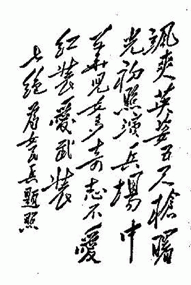 飒爽英姿五尺枪曙
光初照演兵场中
华儿女多奇志不爱
红装爱武装
七绝 为女民兵题照